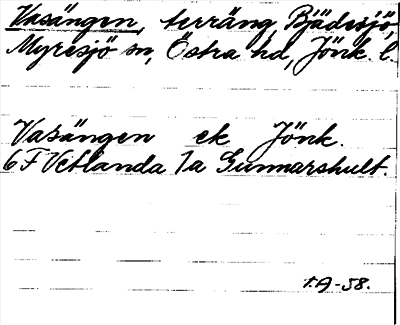 Vasängen, terräng, Bjädesjö,
Myresjö sn, Östra hd, Jönk. l.
Vasängen ek Jönk.
6F Vetlanda 1a Gunnarshult.
1.A-58.